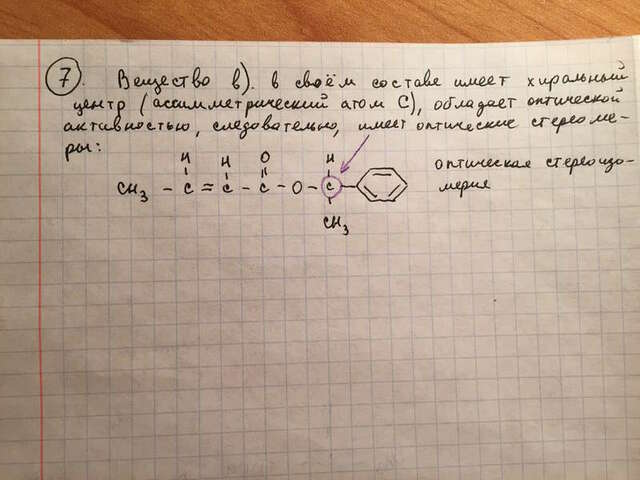 7. Вещество в). в своём составе имеет хиральный
центр (ассимметрический атом С), обладает оптической
активностью, следовательно, имеет оптические стереоме-
ры:
H H O H
CH3 - C = C - C - O - C -
CH3
оптическая стереоизо-
мерия